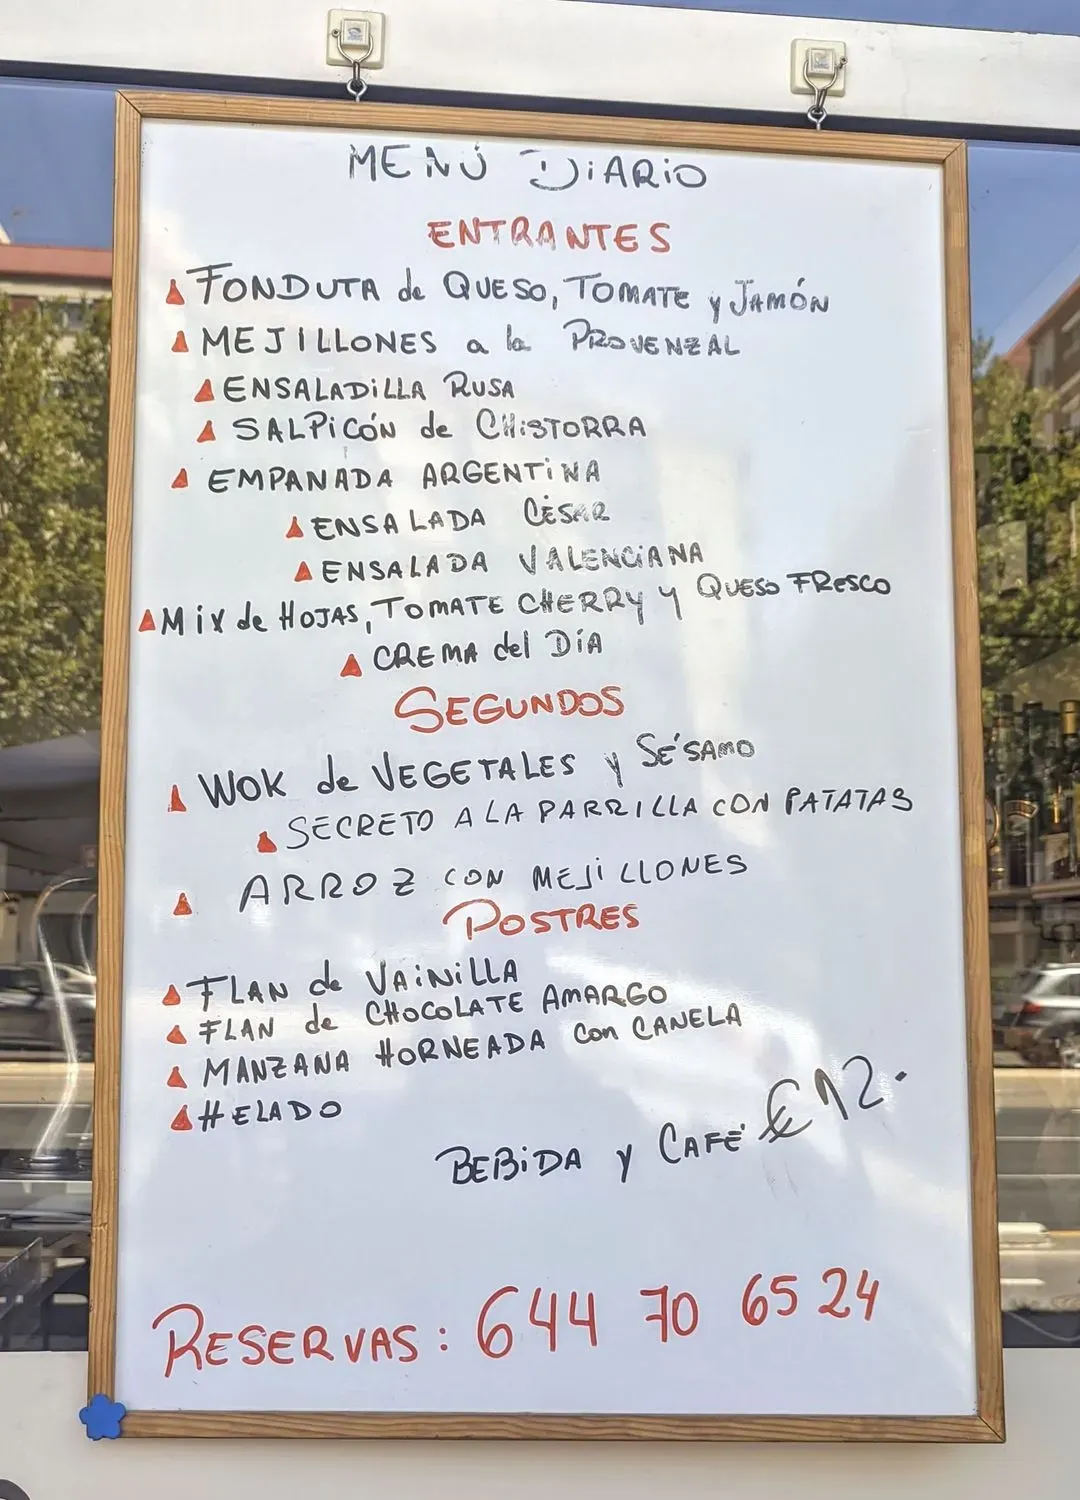 MENÚ DIARIO
ENTRANTES
FONDUTA de QUESO, TOMATE y JAMÓN
MEJILLONES a la PROVENZAL
ENSALADILLA RUSA
SALPICÓN de CHISTORRA
EMPANADA ARGENTINA
ENSALADA CÉSAR
ENSALADA VALENCIANA
MIX de HOJAS, TOMATE CHERRY y QUESO FRESCO
CREMA del DÍA
SEGUNDOS
WOK de VEGETALES y SÉSAMO
SECRETO A LA PARRILLA CON PATATAS
ARROZ CON MEJILLONES
POSTRES
FLAN de VAINILLA
FLAN de CHOCOLATE AMARGO
MANZANA HORNEADA con CANELA
HELADO
BEBIDA y CAFÉ € 12.
RESERVAS: 644 70 65 24